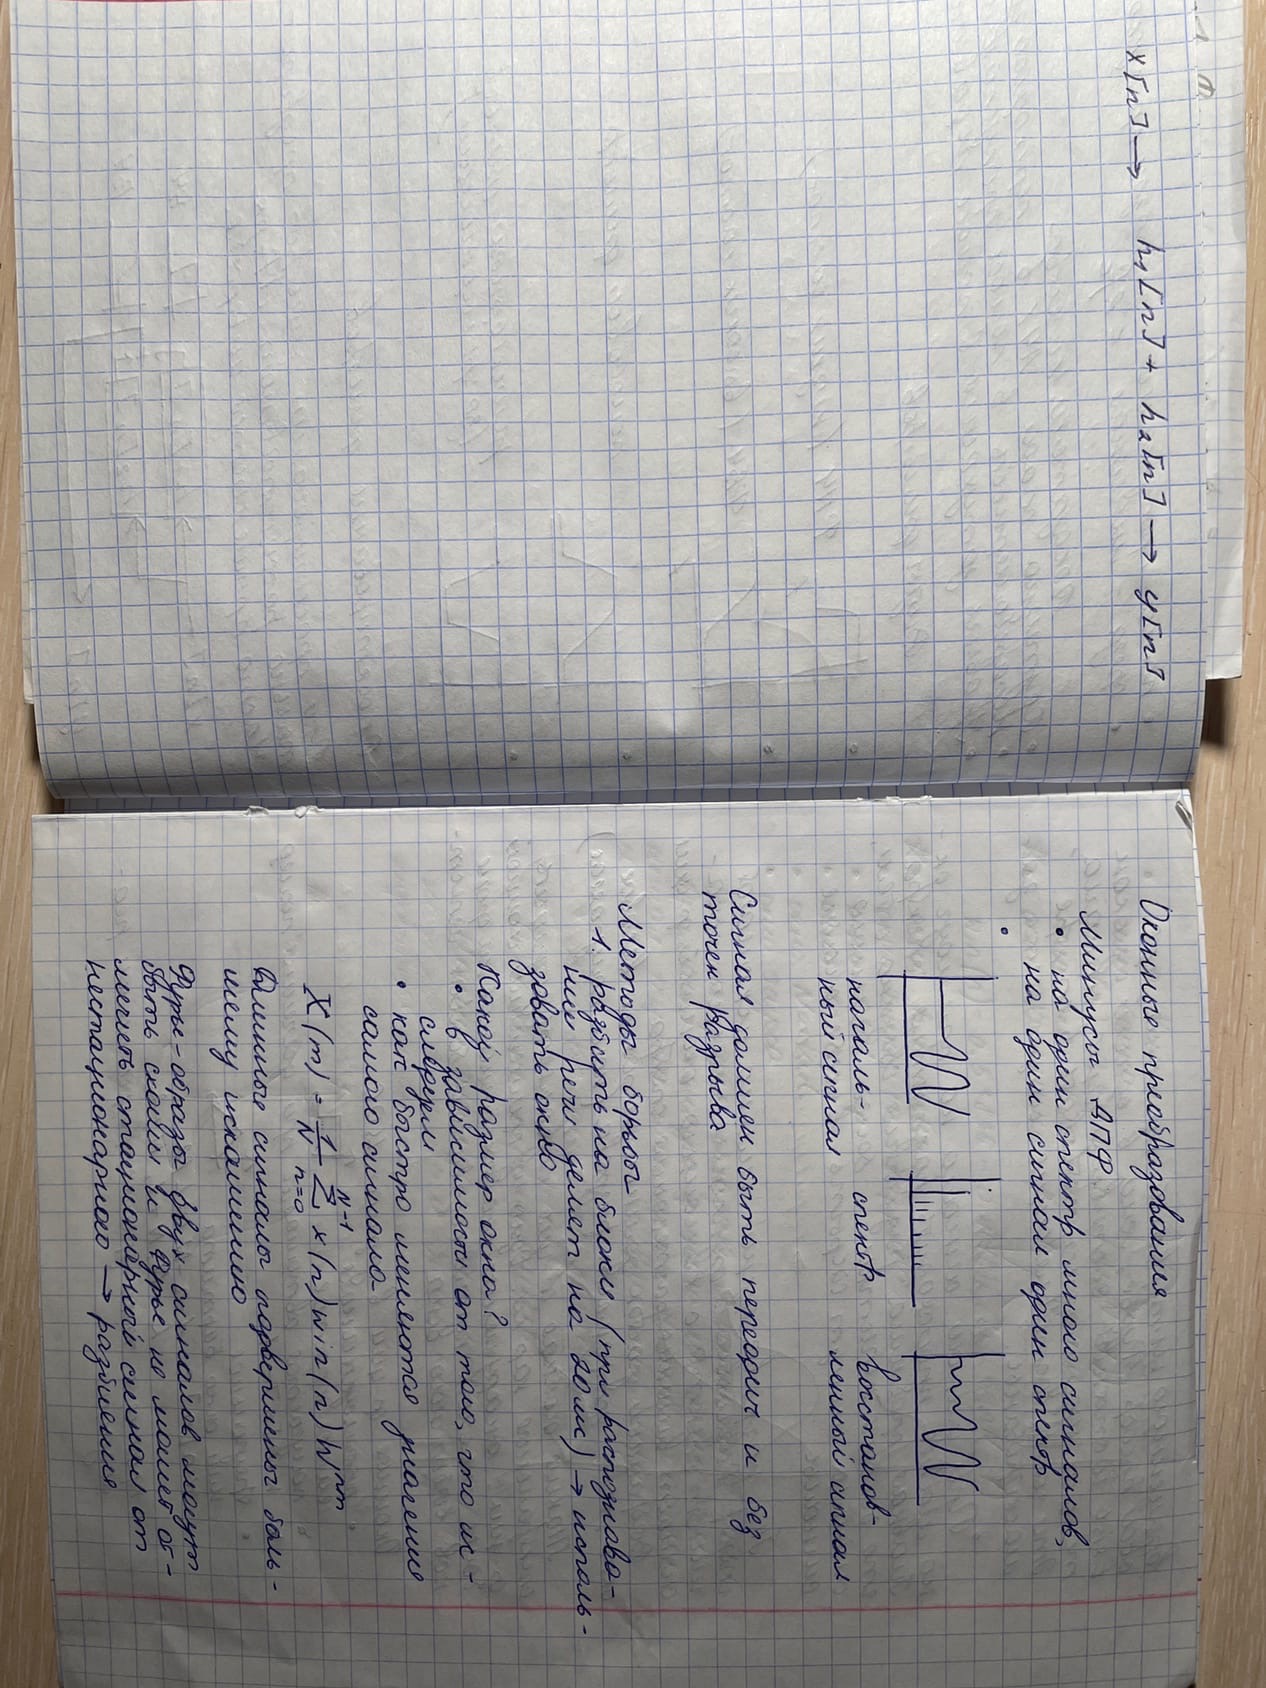 x[n] → h₁[n] + h₂[n] → y[n]
Оконные преобразования
Минусы ДПФ
• на один спектр много сигналов,
на один сигнал один спектр
•
началь-
ный сигнал
спектр
восстанов-
ленный сигнал
Сигнал должен быть переодич и без
точек разрыва
Методы борьбы
1. разбить на блоки (при распознава-
нии речи делят на 20 мс) → исполь-
зовать окно
Какой размер окна?
• в зависимости от того, что ис-
следуем
• как быстро меняются значения
самого сигнала
X(m) = 1/N ∑ₙ₌₀ᴺ⁻¹ x(n) win(n) Wⁿᵐ
Длинные сигналы подвержены боль-
шему искажению
Фурье-образы двух сигналов могут
быть схожи и Фурье не может от-
личить стационарный сигнал от
нестационарного → разбиение